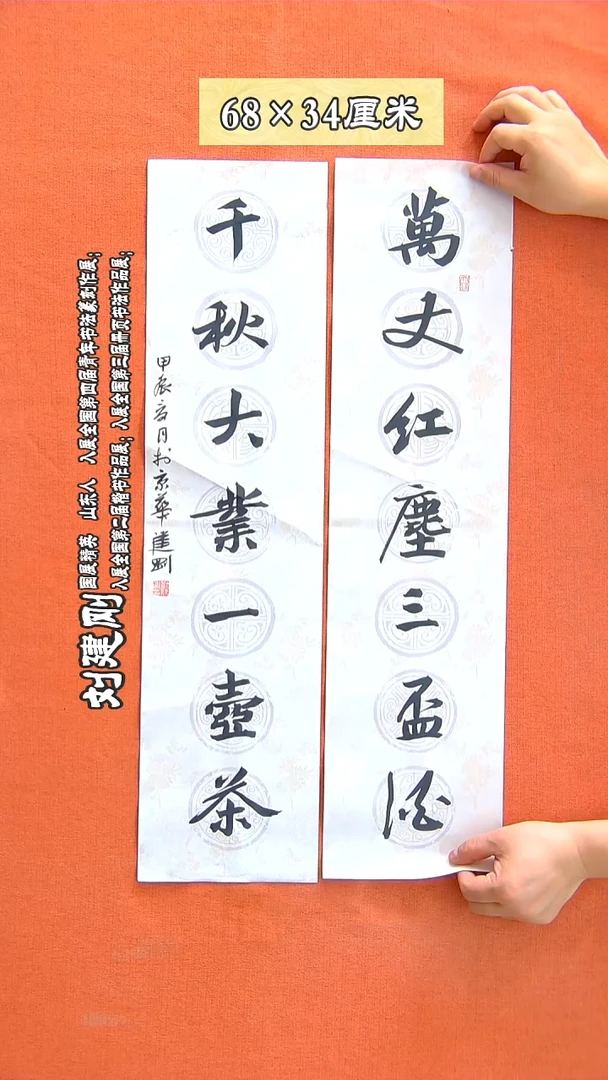 68×34厘米
萬丈红塵三盃酒
千秋大業一壺茶
甲辰年月于京華建刚
刘建刚
国展精英 山东人 入展全国第四届青年书法篆刻作展；
入展全国第二届楷书作品展；入展全国第三届册页书法作品展；